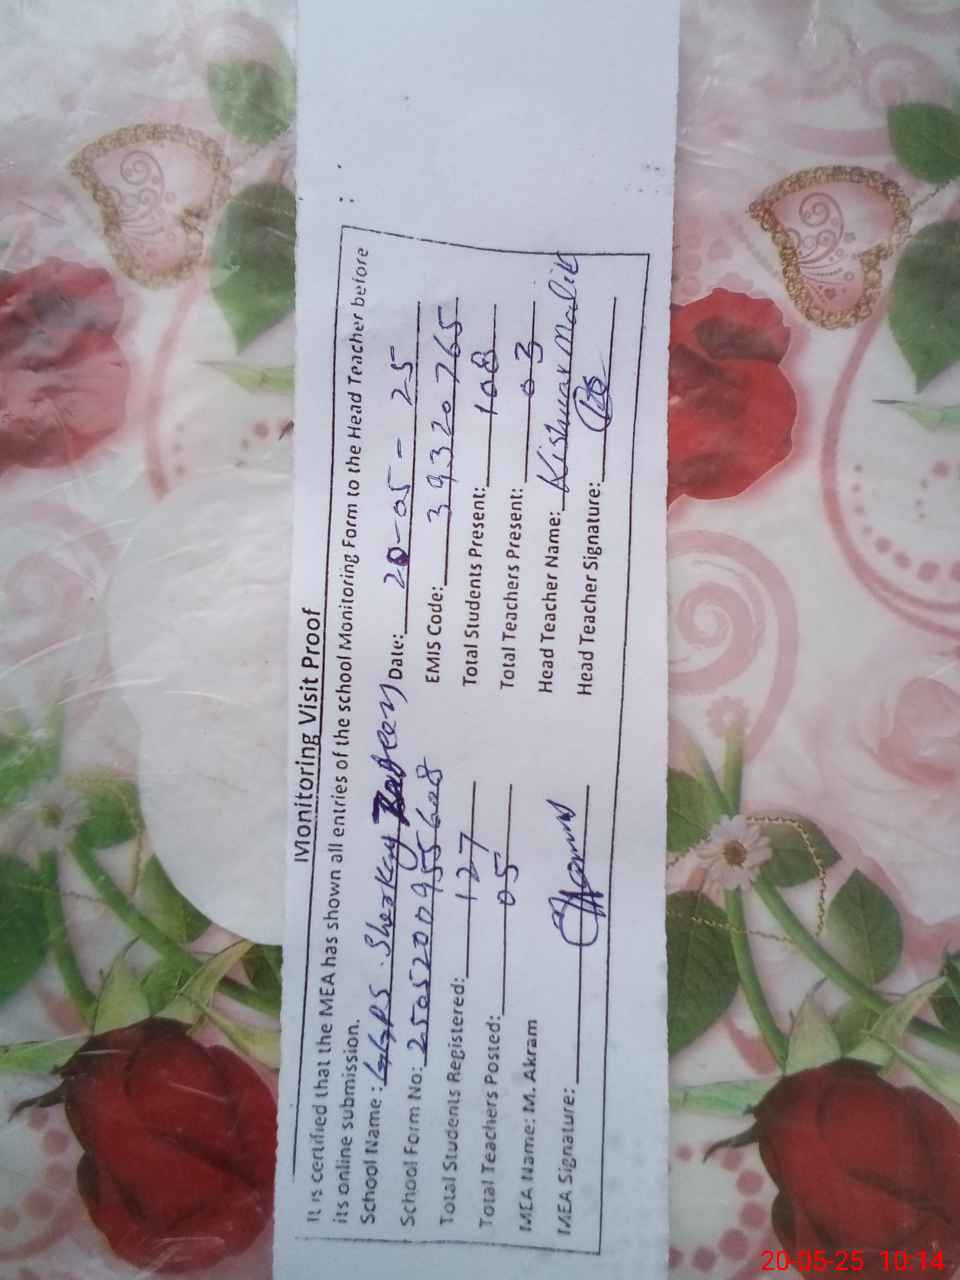 Monitoring Visit Proof
It is certified that the MEA has shown all entries of the school Monitoring Form to the Head Teacher before
its online submission.
School Name : GGPS . Date: 20-05-25
School Form No: EMIS Code: 39320765
Total Students Registered: 127 Total Students Present: 108
Total Teachers Posted: 05 Total Teachers Present: 03
MEA Name: M. Akram Head Teacher Name: Kishwar Malik
MEA Signature: Head Teacher Signature:
20-05-25 10:14